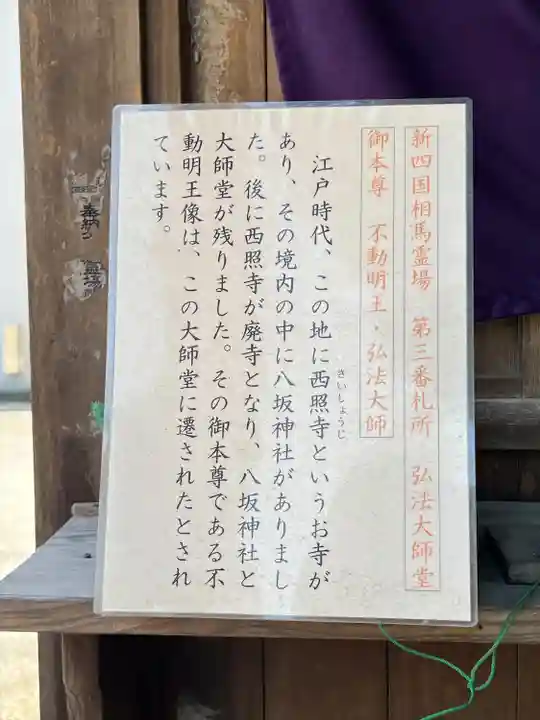 新四国相馬霊場　第三番札所　弘法大師堂
御本尊　不動明王・弘法大師
江戸時代、この地に西照寺というお寺が
さいしょうじ
あり、その境内の中に八坂神社がありまし
た。後に西照寺が廃寺となり、八坂神社と
大師堂が残りました。その御本尊である不
動明王像は、この大師堂に遷されたとされ
ています。
奉納